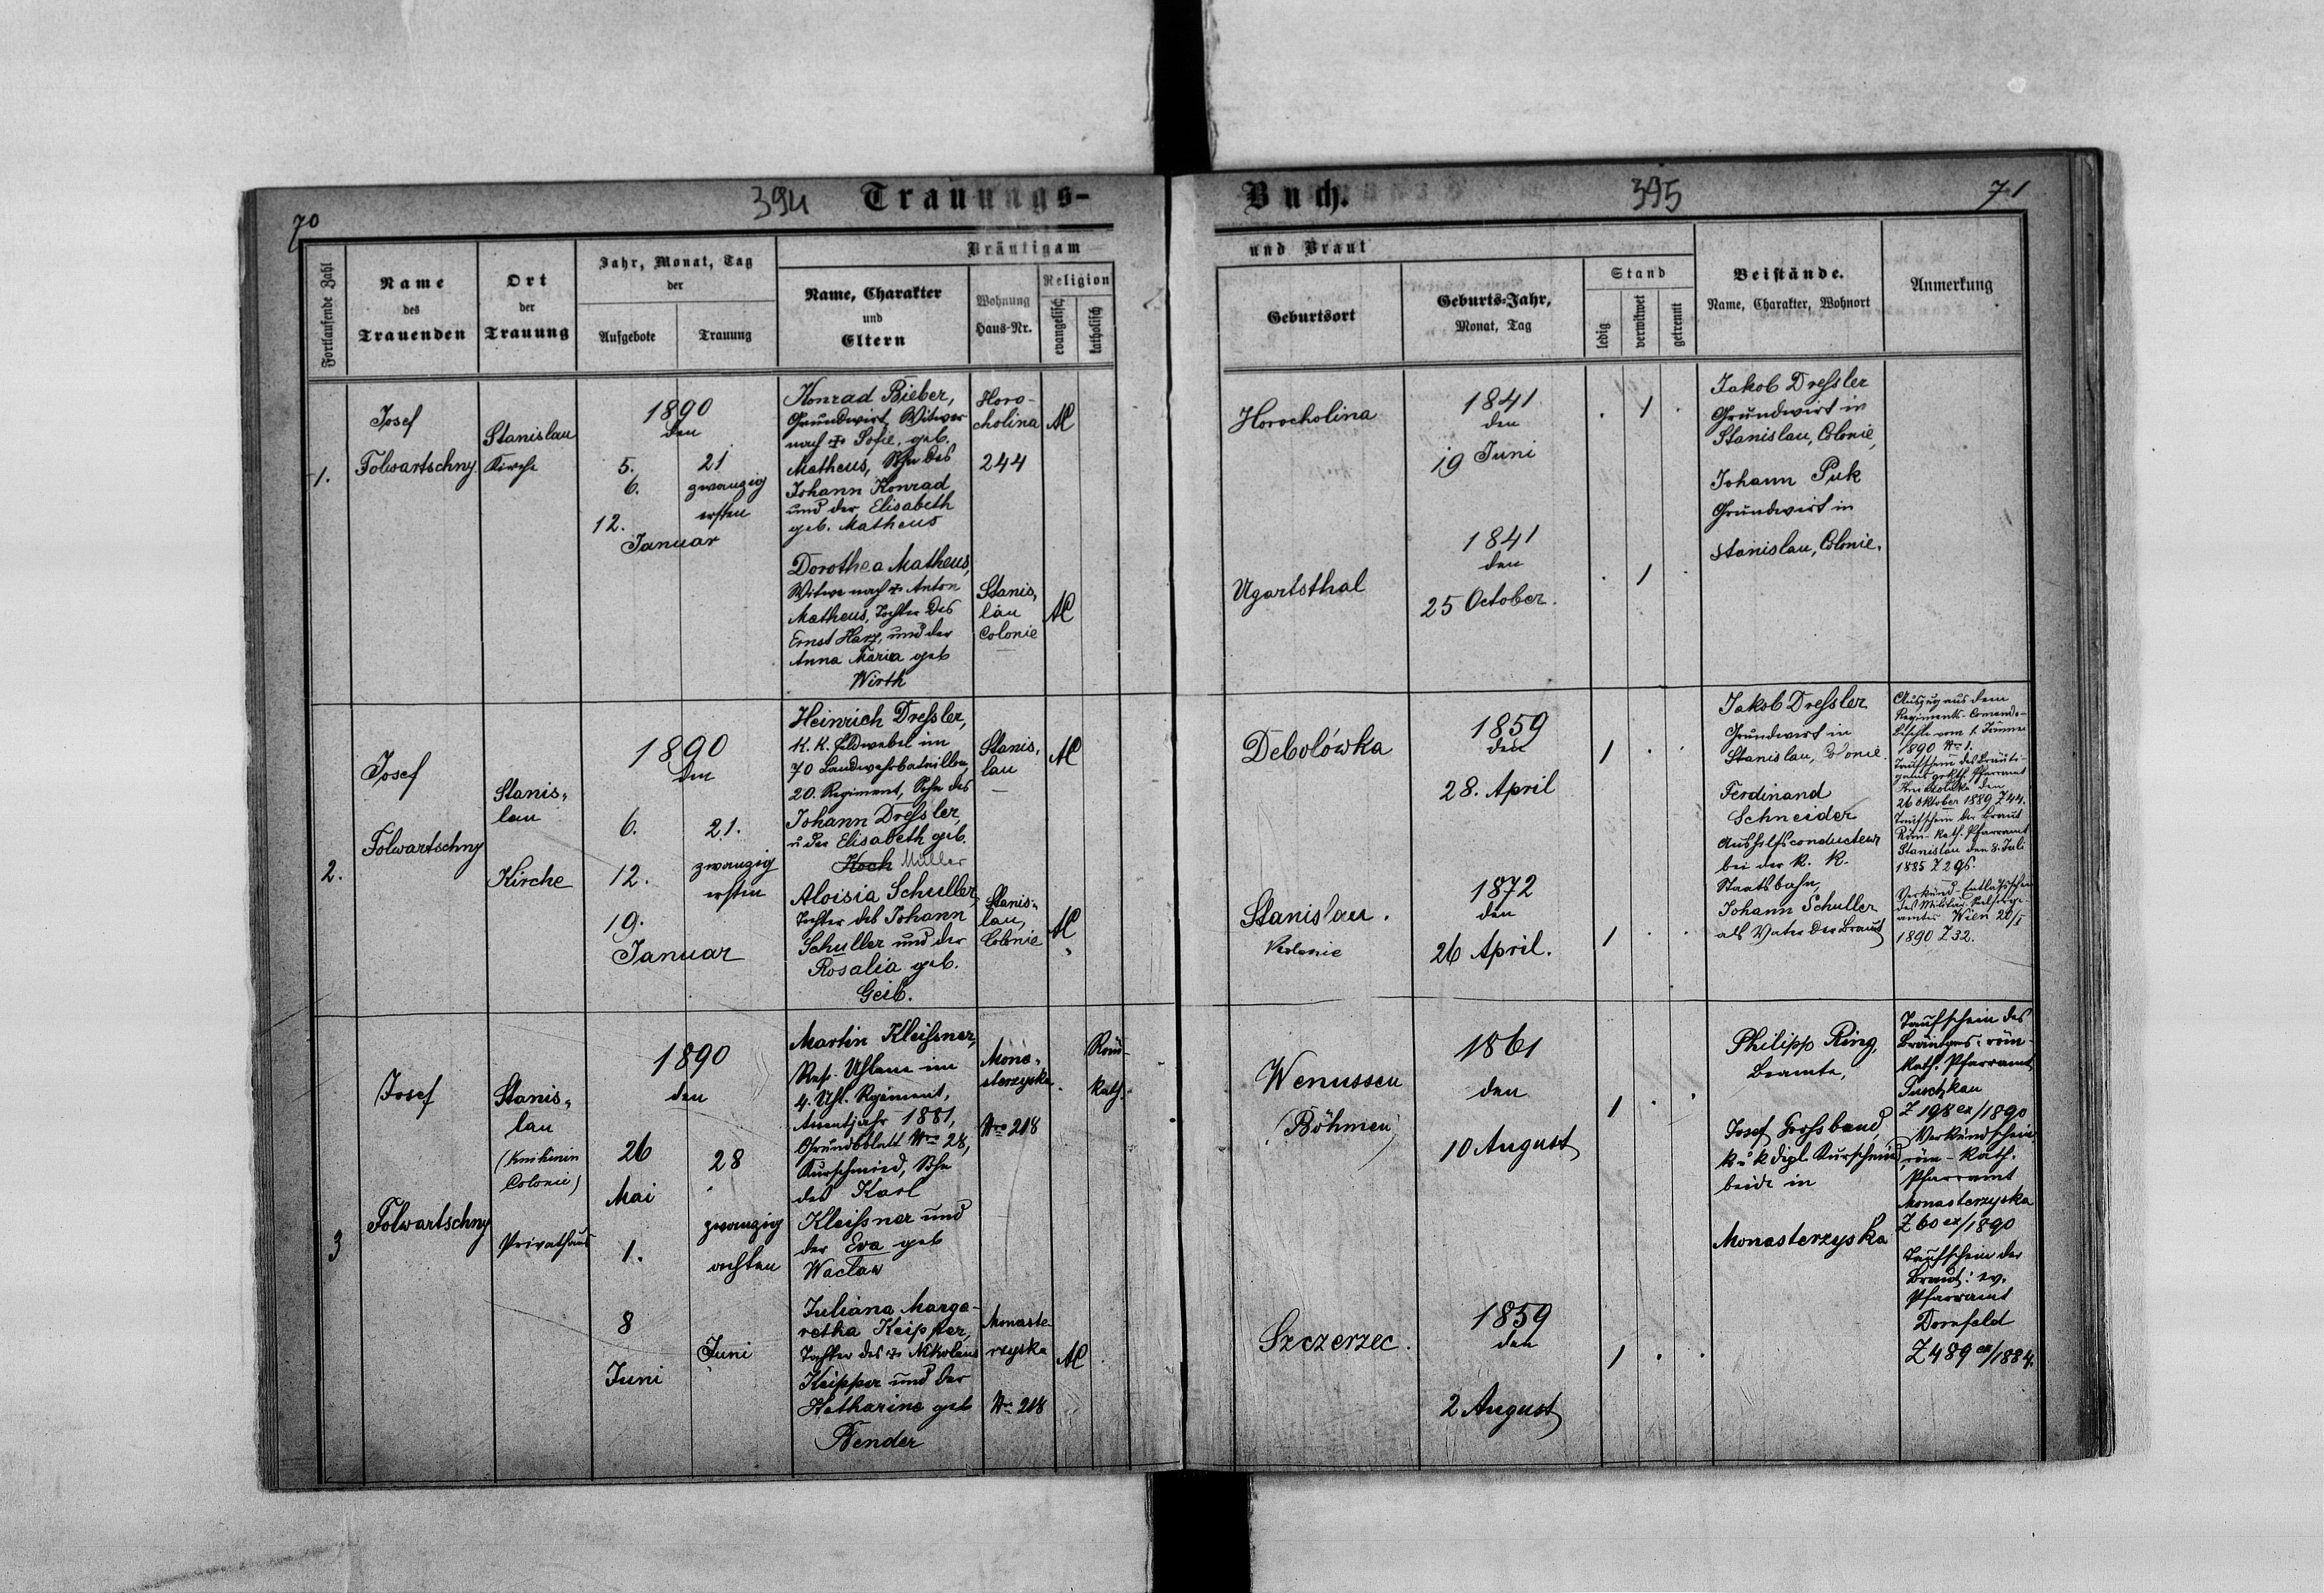 70
394
Trauungs-
Fortlaufende Zahl
Name
des
Trauenden
Ort
der
Trauung
Jahr, Monat, Tag
der
Aufgebote
Trauung
Bräutigam
Name, Charakter
und
Eltern
Wohnung
Haus-Nr.
Religion
evangelisch
katholisch
Buch.
395
71
und Braut
Geburtsort
Geburts-Jahr,
Monat, Tag
Stand
ledig
verwitwet
getrennt
Beistände.
Name, Charakter, Wohnort
Anmerkung
1.
Josef
Folwartschny
Stanislau
Kirche
1890
den
5.
6.
12.
Januar
21
zwanzig
ersten
Konrad Bieber,
Grundwirt, Witwer
nach + Sofie, geb.
Matheus, Sohn des
Johann Konrad
und der Elisabeth
geb. Matheus
Horo-
cholina
244
AC
Horocholina
1841
den
19 Juni
. 1 .
Jakob Dreſsler
Grundwirt in
Stanislau, Colonie,
Johann Puk
Grundwirt in
Stanislau, Colonie.
Dorothea Matheus,
Witwe nach + Anton
Matheus, Tochter des
Ernst Harz, und der
Anna Maria geb
Wirth
Stanis,
lau
Colonie
AC
Ugartsthal
1841
den
25 October.
. 1 .
2.
Josef
Folwartschny
Stanis,
lau
Kirche
1890
den
6.
12.
19.
Januar
21.
zwanzig
ersten
Heinrich Dreſsler,
K. K. Feldwebel im
70 Landwehrbataillon,
20. Regiment, Sohn des
Johann Dreſsler,
u der Elisabeth geb.
Koch Müller
Stanis,
lau
AC
Debolówka
1859
den
28. April
1 . .
Jakob Dreſsler
Grundwirt in
Stanislau,
Ferdinand
Schneider
Aushilfsconducteur
bei der K. K.
Staatsbahn,
Johann Schuller
als Vater der Braut
Auszug aus dem
Regiments-
Befehle vom 1. Jänner
1890 Nr 1.
Taufschein des Bräuti-
gams Pfarramt
den
26 Oktober 1889 Z 44.
Taufschein der Braut
Röm-kath. Pfarramt
Stanislau den 8. Juli
1885 Z 296.
Verkünd-Entlaſsschein
des Militär-Seelsorge-
amtes Wien 20/I
1890 Z 32.
Aloisia Schuller,
Tochter des Johann
Schuller und der
Rosalia geb.
Geib.
Stanis-
lau,
Colonie
AC
Stanislau.
Kolonie
1872
den
26 April.
1 . .
3
Josef
Folwartschny
Stanis,
lau
(Knihinin
Colonie)
Privathaus
1890
den
26
Mai
1.
8
Juni
28
zwanzig
achten
Juni
Martin Kleiſsner,
Res. Uhlane im
4. Uhl. Regiment,
Assentjahr 1881,
Grundsblatt Nro 28,
Kurschmied, Sohn
des Karl
Kleiſsner und
der Eva geb
Wacław
Mona-
sterzyska
Nro 218
Röm-
kath.
Wenussen
(Böhmen)
1861
den
10 August
1 . .
Philipp Ring,
Beamte,
Josef Groſsband,
k u k dipl. Kurschmied
beide in
Monasterzyska
Taufschein des
Bräutgms: röm-
kath. Pfarramt
Puschkau
Z 198 ex/1890
Verkündschein
röm-kath.
Pfarramt
Monasterzyska
Z 60 ex/1890
Taufschein der
Braut: ev.
Pfarramt
Dornfeld
Z 489 ex/1884.
Juliana Marga-
retha Keipper,
Tochter des + Nikolaus
Keipper und der
Katharina geb
Bender
Monaste-
rzyska
Nr 218
AC
Szczerzec.
1859
den
2 August
1 . .